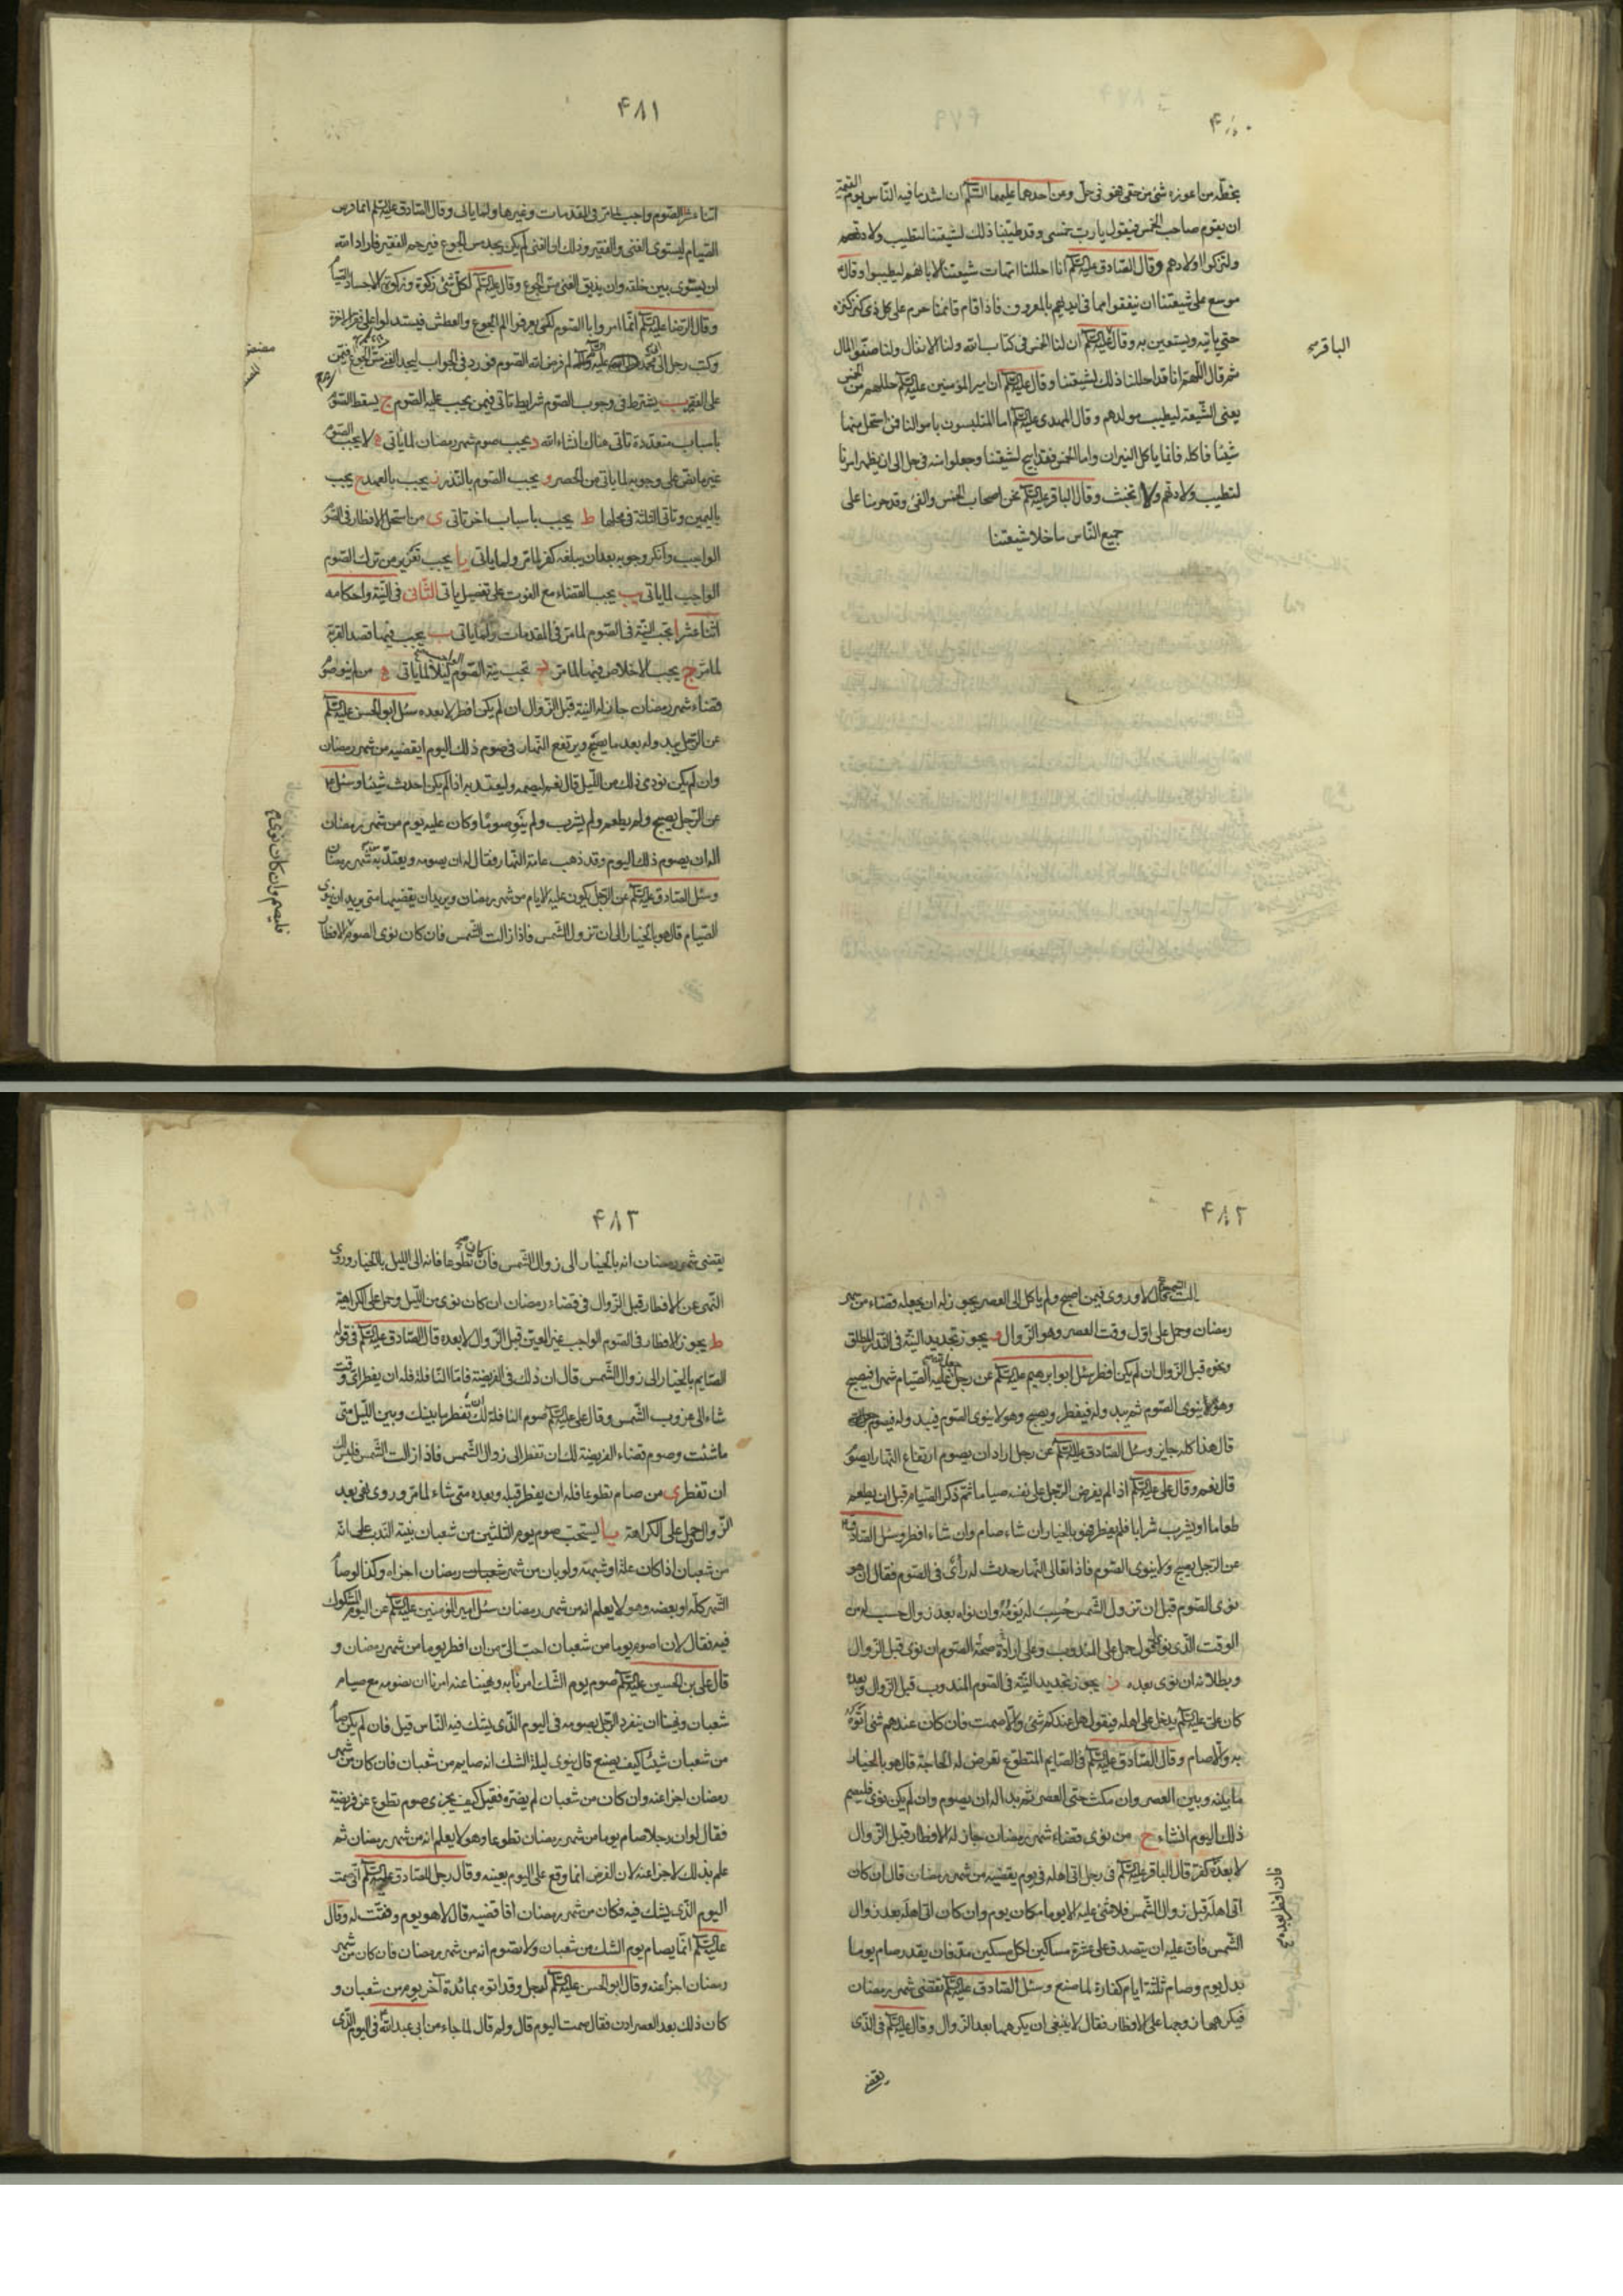 ۴۸۰
بخطّه من اعوزه شئ من حقى فهو فى حلّ وعن احدهما عليهما السّلم ان اشد ما فيه النّاس يوم القيمة
ان يقوم صاحب الخمس فيقول يا ربّ خمسى وقد طيّبنا ذلك لشيعتنا لتطيب ولادتهم
ولتزكوا اولادهم وقال الصّادق عليه السلم انا احللنا امّهات شيعتنا لابائهم ليطيبوا وقال
موسع على شيعتنا ان ينفقوا مما فى ايديهم بالمعروف فاذا قام قائمنا حرم على كل ذى كنز كنزه
حتى ياتيه ويستعين به وقال عليه السلم ان لنا الخمس فى كتاب الله ولنا الانفال ولنا صفو المال
ثم قال اللّهم انا قد احللنا ذلك لشيعتنا وقال عليه السلم ان امير المؤمنين عليه السلم حللهم من الخمس
يعنى الشّيعة ليطيب مولدهم وقال المهدى عليه السلم اما المتلبسون باموالنا فمن استحل منها
شيئا فاكله فانما ياكل النيران واما الخمس فقد ابيح لشيعتنا وجعلوا منه فى حل الى ان يظهر امرنا
لتطيب ولادتهم ولا تخبث وقال الباقر عليه السلم نحن اصحاب الخمس والفئ وقد حرمنا على
جميع النّاس ما خلا شيعتنا
الباقر
۴۸۱
اثنا عشر الصّوم واجب لما مرّ فى المقدمات وغيرها ولما ياتى وقال الصّادق عليه السلم انما فرض
الصّيام ليستوى الغنى والفقير وذلك ان الغنى لم يكن يجد مس الجوع فيرحم الفقير فاراد الله
ان يستوى بين خلقه وان يذيق الغنى مسّ الجوع وقال عليه السلم لكلّ شئ زكوة وزكوة الاجساد الصّيام
وقال الرّضا عليه السلم انّما امروا بالصّوم لكى يعرفوا الم الجوع والعطش فيستدلوا على فقر الاخرة
وكتب رجل الى ابى محمد عليه السلم لم فرض الله الصّوم فورد فى الجواب ليجد الغنى مسّ الجوع فيمن
على الفقير ب يشترط فى وجوب الصّوم شرايط تاتى فيمن يجب عليه الصّوم ج يسقط الصّوم
باسباب متعدّدة تاتى هناك انشاء الله د يجب صوم شهر رمضان لما ياتى ه لا يجب الصّوم
غير ما نصّ على وجوبه لما ياتى من الحصر و يجب الصّوم بالنّذر ز يجب بالعهد ح يجب
باليمين وتاتى الثلثة فى محلها ط يجب باسباب اخر تاتى ى من استحل الافطار فى الصّوم
الواجب وانكر وجوبه بعد ان يبلغه كفر لما مرّ ولما ياتى يا يجب تعزير من ترك الصّوم
الواجب لما ياتى يب يجب القضاء مع الفوت على تفصيل ياتى الثّانى فى النّية واحكامه
اثنا عشر ا تجب النّية فى الصّوم لما مرّ فى المقدمات ولما ياتى ب يجب فيها قصد القربة
لما مرّ ج يجب الاخلاص فيها لما مرّ د تجب نيّة الصّوم ليلا لما ياتى ه من لم ينو صوم
قضاء شهر رمضان جاز له النية قبل الزّوال ان لم يكن افطر لا بعده سئل ابو الحسن عليه السلم
عن الرّجل يبدو له بعد ما يصبح ويرتفع النّهار فى صوم ذلك اليوم ايقضيه من شهر رمضان
وان لم يكن نوى ذلك من اللّيل قال نعم ليصمه وليعتد به اذا لم يكن احدث شيئا وسئل
عن الرّجل يصبح ولم يطعم ولم يشرب ولم ينو صوما وكان عليه يوم من شهر رمضان
اله ان يصوم ذلك اليوم وقد ذهب عامة النّهار فقال له ان يصومه ويعتدّ به من شهر رمضان
وسئل الصّادق عليه السلم عن الرّجل يكون عليه الايام من شهر رمضان ويريد ان يقضيها متى يريد ان ينوى
الصّيام قال هو بالخيار الى ان تزول الشّمس فاذا زالت الشّمس فان كان نوى الصوم الافطار
فليصم وان كان نوى
۴۸۲
رمضان وحمل على اوّل وقت العصر وهو الزّوال و يجوز تجديد النّية فى النّذر المطلق
ونحوه قبل الزّوال ان لم يكن افطر سئل ابو ابراهيم عليه السلم عن رجل جعل لله عليه الصّيام شهرا فيصبح
وهو لا ينوى الصّوم ثم يبدو له فيفطر ويصبح وهو لا ينوى الصّوم فيبدو له فيصوم
قال هذا كله جايز وسئل الصّادق عليه السلم عن رجل اراد ان يصوم ارتفاع النّهار ايصوم
قال نعم وقال على عليه السلم اذا لم يفرض الرّجل على نفسه صياما ثم ذكر الصّيام قبل ان يطعم
طعاما او يشرب شرابا فلم يفطر فهو بالخيار ان شاء صام وان شاء افطر وسئل الصّادق
عن الرّجل يصبح ولا ينوى الصّوم فاذا تعالى النّهار حدث له رأى فى الصّوم فقال ان هو
نوى الصّوم قبل ان تزول الشّمس حُسِبَ له يَوْمُهُ وان نواه بعد زوال حسب له من
الوقت الّذى نوى اقول حمل على المندوب وعلى ارادة صحّة الصّوم ان نوى قبل الزّوال
وبطلانه ان نوى بعده ز يجوز تجديد النّية فى الصّوم المندوب قبل الزّوال وبعده
كان على عليه السلم يدخل على اهله فيقول هل عندكم شئ والّا صمت فان كان عندهم شئ اتوه
به والّا صام وقال الصّادق عليه السلم فى الصّايم المتطوّع تعرض له الحاجة قال هو بالخيار
ما بينه وبين العصر وان مكث حتى العصر ثم بدا له ان يصوم وان لم يكن نوى فليصم
ذلك اليوم انشاء ح من نوى قضاء شهر رمضان جاز له الافطار قبل الزّوال
لا بعده كفّر قال الباقر عليه السلم فى رجل اتى اهله فى يوم يقضيه من شهر رمضان قال ان كان
اتى اهله قبل زوال الشّمس فلا شئ عليه الا يوما مكان يوم وان كان اتى اهله بعد زوال
الشّمس فان عليه ان يتصدق على عشرة مساكين لكل مسكين مدّ فان لم يقدر صام يوما
بدل يوم وصام ثلثة ايام كفارة لما صنع وسئل الصّادق عليه السلم تقضى شهر رمضان
فيكرهها زوجها على الافطار فقال لا ينبغى ان يكرهها بعد الزّوال وقال عليه السلم فى الّذى
يقضى
فان افطر بعده
۴۸۳
يقضى شهر رمضان انه بالخيار الى زوال الشّمس فان كان تطوعا فانه الى الليل بالخيار وروى
النّهى عن الافطار قبل الزّوال فى قضاء رمضان ان كان نوى من اللّيل وحمل على الكراهة
ط يجوز الافطار فى الصّوم الواجب غير المعيّن قبل الزّوال لا بعده قال الصّادق عليه السلم فى قوله
الصّايم بالخيار الى زوال الشّمس قال ان ذلك فى الفريضة فامّا النّافلة فله ان يفطر اىّ وقت
شاء الى غروب الشّمس وقال على عليه السلم صوم النافلة لك ان تفطر ما بينك وبين اللّيل متى
ما شئت وصوم قضاء الفريضة لك ان تفطر الى زوال الشّمس فاذا زالت الشّمس فليس لك
ان تفطر ى من صام تطوعا فله ان يفطر قبله وبعده متى شاء لما مرّ وروى نفى بعد
الزّوال وحمل على الكراهة يا يستحبّ صوم يوم الثلثين من شعبان بنيّة النّدب على انّه
من شعبان اذا كان علّة او شبهة ولو بان من شهر رمضان اجزاه وكذا لو صام
الشّهر كلّه او بعضه وهو لا يعلم انه من شهر رمضان سئل امير المؤمنين عليه السلم عن اليوم المشكوك
فيه فقال لان اصوم يوما من شعبان احبّ الىّ من ان افطر يوما من شهر رمضان و
قال على بن الحسين عليه السلم صوم يوم الشّك امرنا به ونهينا عنه امرنا ان نصومه مع صيام
شعبان ونهينا ان ينفرد الرّجل بصومه فى اليوم الّذى يشك فيه النّاس قيل فان لم يكن صام
من شعبان شيئا كيف يصنع قال ينوى ليلة الشك انه صايم من شعبان فان كان من شهر
رمضان اجزا عنه وان كان من شعبان لم يضره فقيل كيف يجزى صوم تطوع عن فريضة
فقال لو ان رجلا صام يوما من شهر رمضان تطوعا وهو لا يعلم انه من شهر رمضان ثم
علم بذلك لاجزا عنه لان الفرض انما وقع على اليوم بعينه وقال رجل للصّادق عليه السلم انى صمت
اليوم الّذى يشك فيه فكان من شهر رمضان افاقضيه قال لا هو يوم وفّقت له وقال
عليه السلم انّما يصام يوم الشك من شعبان ولا تصوم انه من شهر رمضان فان كان من شهر
رمضان اجزا عنه وقال ابو الحسن عليه السلم لرجل وقد اتوه بمائدة آخر يوم من شعبان و
كان ذلك بعد العصر ادن فقال صمت اليوم قال ولم قال لما جاء من ابى عبد الله فى اليوم الّذى